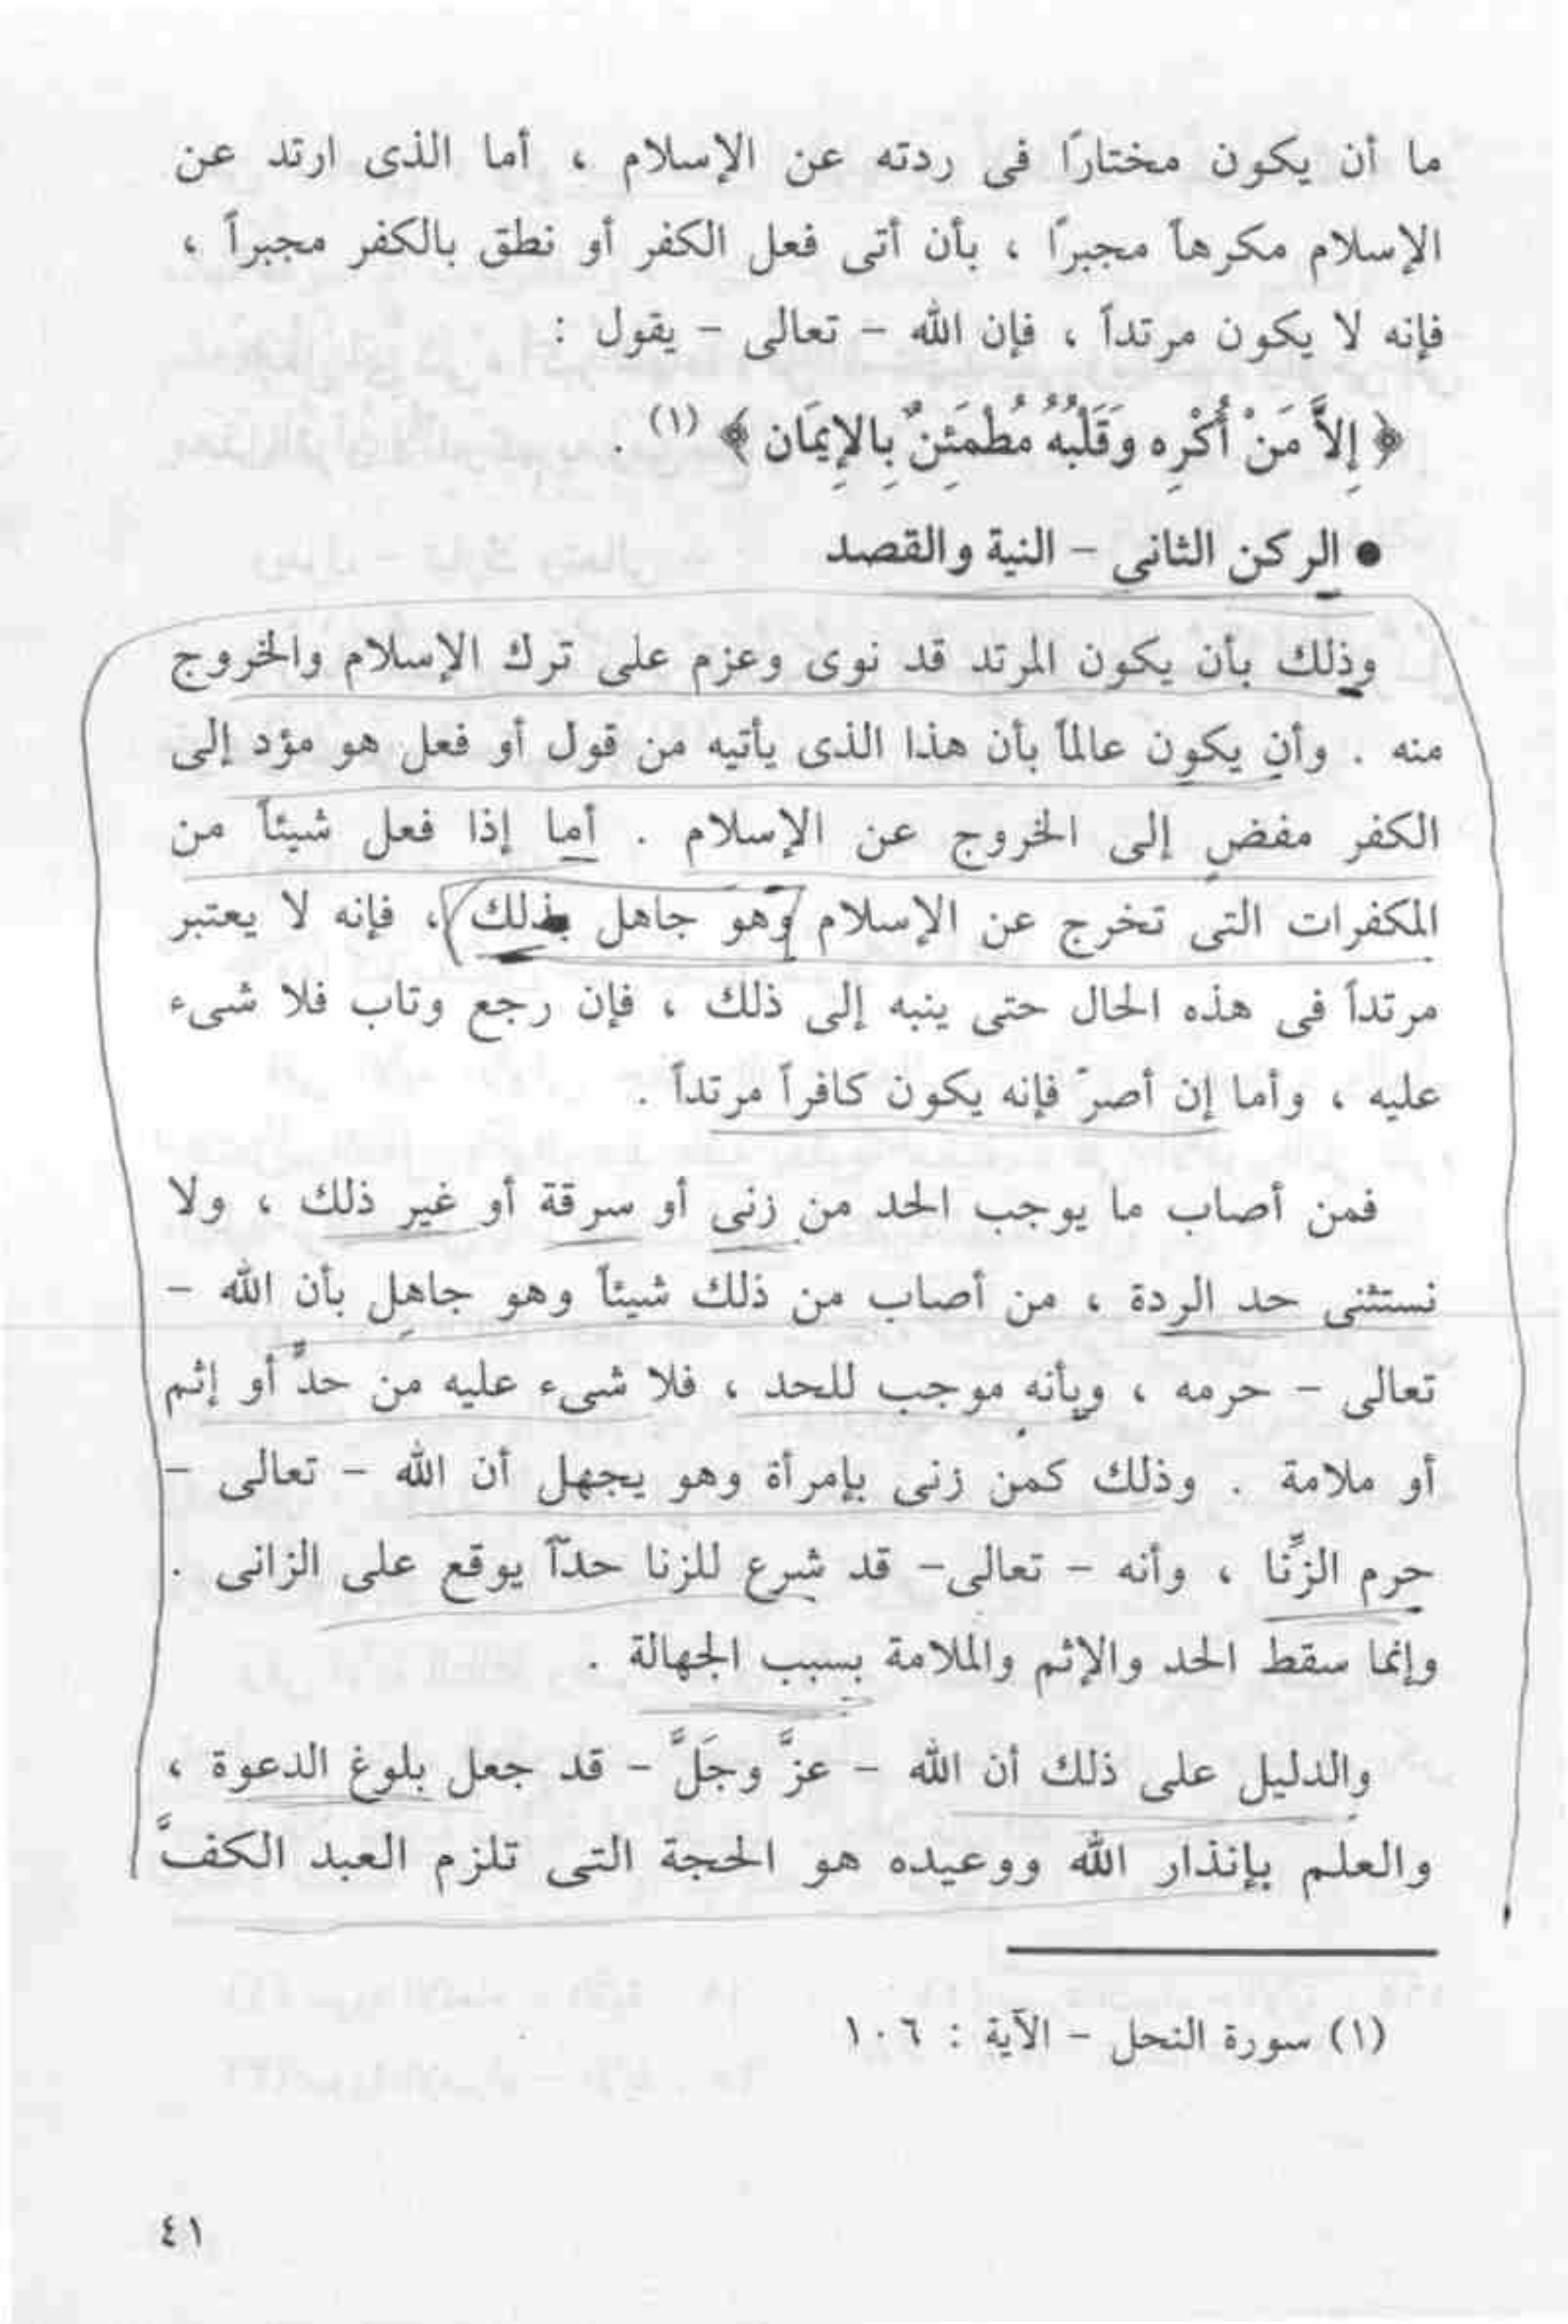 ما أن يكون مختارًا فى ردته عن الإسلام ، أما الذى ارتد عن
الإسلام مكرهاً مجبرًا ، بأن أتى فعل الكفر أو نطق بالكفر مجبراً ،
فإنه لا يكون مرتداً ، فإن الله - تعالى - يقول :
﴿ إِلاَّ مَنْ أُكْرِه وَقَلْبُهُ مُطْمَئِنٌ بِالإِيمَان ﴾ (١) .
● الركن الثانى - النية والقصد
وذلك بأن يكون المرتد قد نوى وعزم على ترك الإسلام والخروج
منه . وأن يكون عالماً بأن هذا الذى يأتيه من قول أو فعل هو مؤد إلى
الكفر مفضٍ إلى الخروج عن الإسلام . أما إذا فعل شيئاً من
المكفرات التى تخرج عن الإسلام وهو جاهل بذلك ، فإنه لا يعتبر
مرتداً فى هذه الحال حتى ينبه إلى ذلك ، فإن رجع وتاب فلا شىء
عليه ، وأما إن أصرّ فإنه يكون كافراً مرتداً .
فمن أصاب ما يوجب الحد من زنى أو سرقة أو غير ذلك ، ولا
نستثنى حد الردة ، من أصاب من ذلك شيئاً وهو جاهل بأن الله -
تعالى - حرمه ، وبأنه موجب للحد ، فلا شىء عليه من حدٍّ أو إثم
أو ملامة . وذلك كمن زنى بإمرأة وهو يجهل أن الله - تعالى -
حرم الزِّنا ، وأنه - تعالى- قد شرع للزنا حدّاً يوقع على الزانى .
وإنما سقط الحد والإثم والملامة بسبب الجهالة .
والدليل على ذلك أن الله - عزَّ وجَلَّ - قد جعل بلوغ الدعوة ،
والعلم بإنذار الله ووعيده هو الحجة التى تلزم العبد الكفَّ
(١) سورة النحل - الآية : ١٠٦
٤١